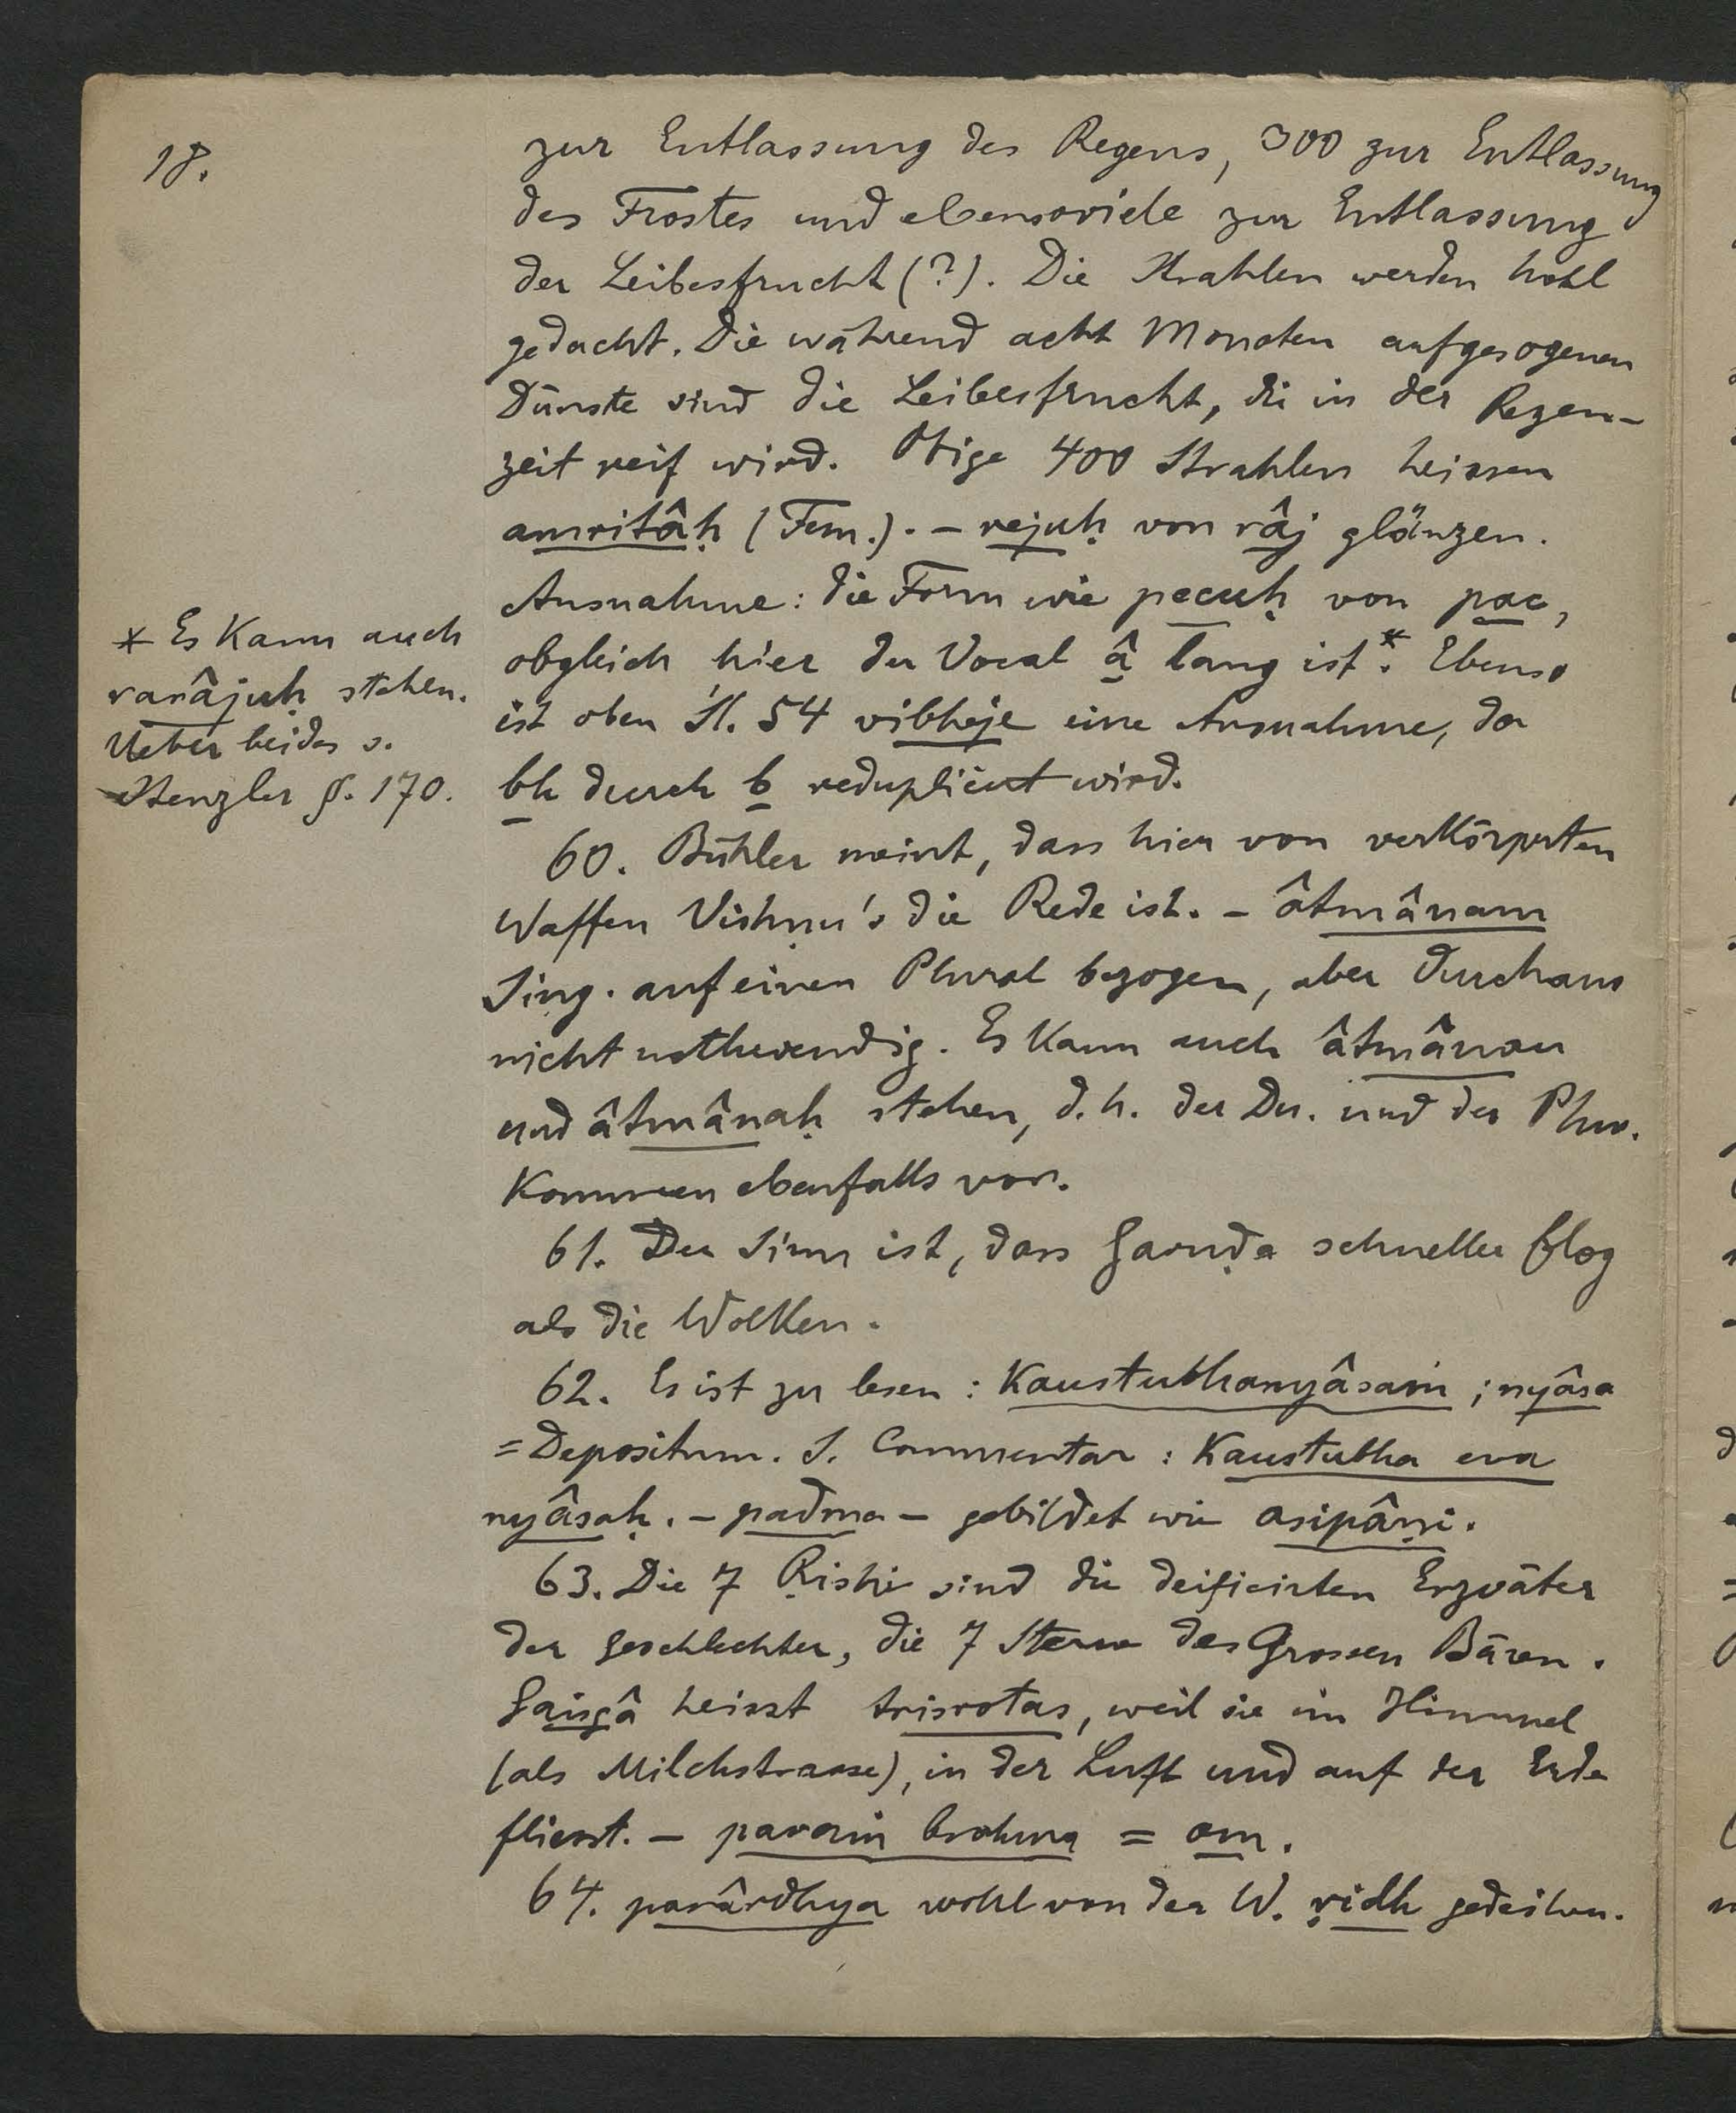 18.
zur Entlassung des Regens, 300 zur Entlassung
des Frostes und ebensoviele zur Entlassung
der Leibesfrucht (?). Die Strahlen werden hohl
gedacht. Die während acht Monaten aufgesogenen
Dünste sind die Leibesfrucht, die in der Regen-
zeit reif wird. Obige 400 Strahlen heissen
amritâḥ (Fem.). – rejuḥ von râj glänzen.
Ausnahme: die Form wie pecuḥ von pac,
obgleich hier der Vocal â lang ist.* Ebenso
ist oben Śl. 54 vibheje eine Ausnahme, da
bh durch b reduplicirt wird.
* Es kann auch
rarâjuḥ stehen.
Ueber beides s.
Stenzler §. 170.
60. Bühler meint, dass hier von verkörperten
Waffen Vishṇu's die Rede ist. – âtmânam
Sing. auf einen Plural bezogen, aber durchaus
nicht nothwendig. Es kann auch âtmânau
und âtmânaḥ stehen, d. h. der Du. und der Plur.
kommen ebenfalls vor.
61. Der Sinn ist, dass Garuḍa schneller flog
als die Wolken.
62. Es ist zu lesen: Kaustubhanyâsaṁ; nyâsa
= Depositum. S. Commentar: Kaustubha eva
nyâsaḥ. – padma – gebildet wie asipâṇi.
63. Die 7 Ṛishi sind die deificirten Erzväter
der Geschlechter, die 7 Sterne des Grossen Bären.
Gaṅgâ heisst trisrotas, weil sie im Himmel
(als Milchstrasse), in der Luft und auf der Erde
fliesst. – paraṁ brahma = om.
64. parârdhya wohl von der W. ṛidh gedeihen.